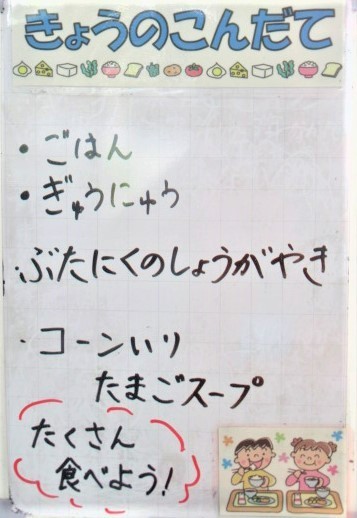 きょうのこんだて
・ごはん
・ぎゅうにゅう
・ぶたにくのしょうがやき
・コーンいり
たまごスープ
たくさん
食べよう!